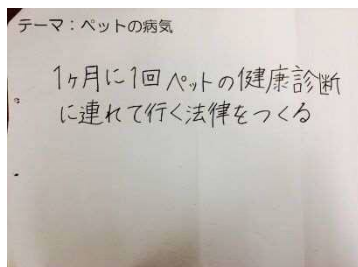 テーマ：ペットの病気
1ヶ月に1回ペットの健康診断
に連れて行く法律をつくる